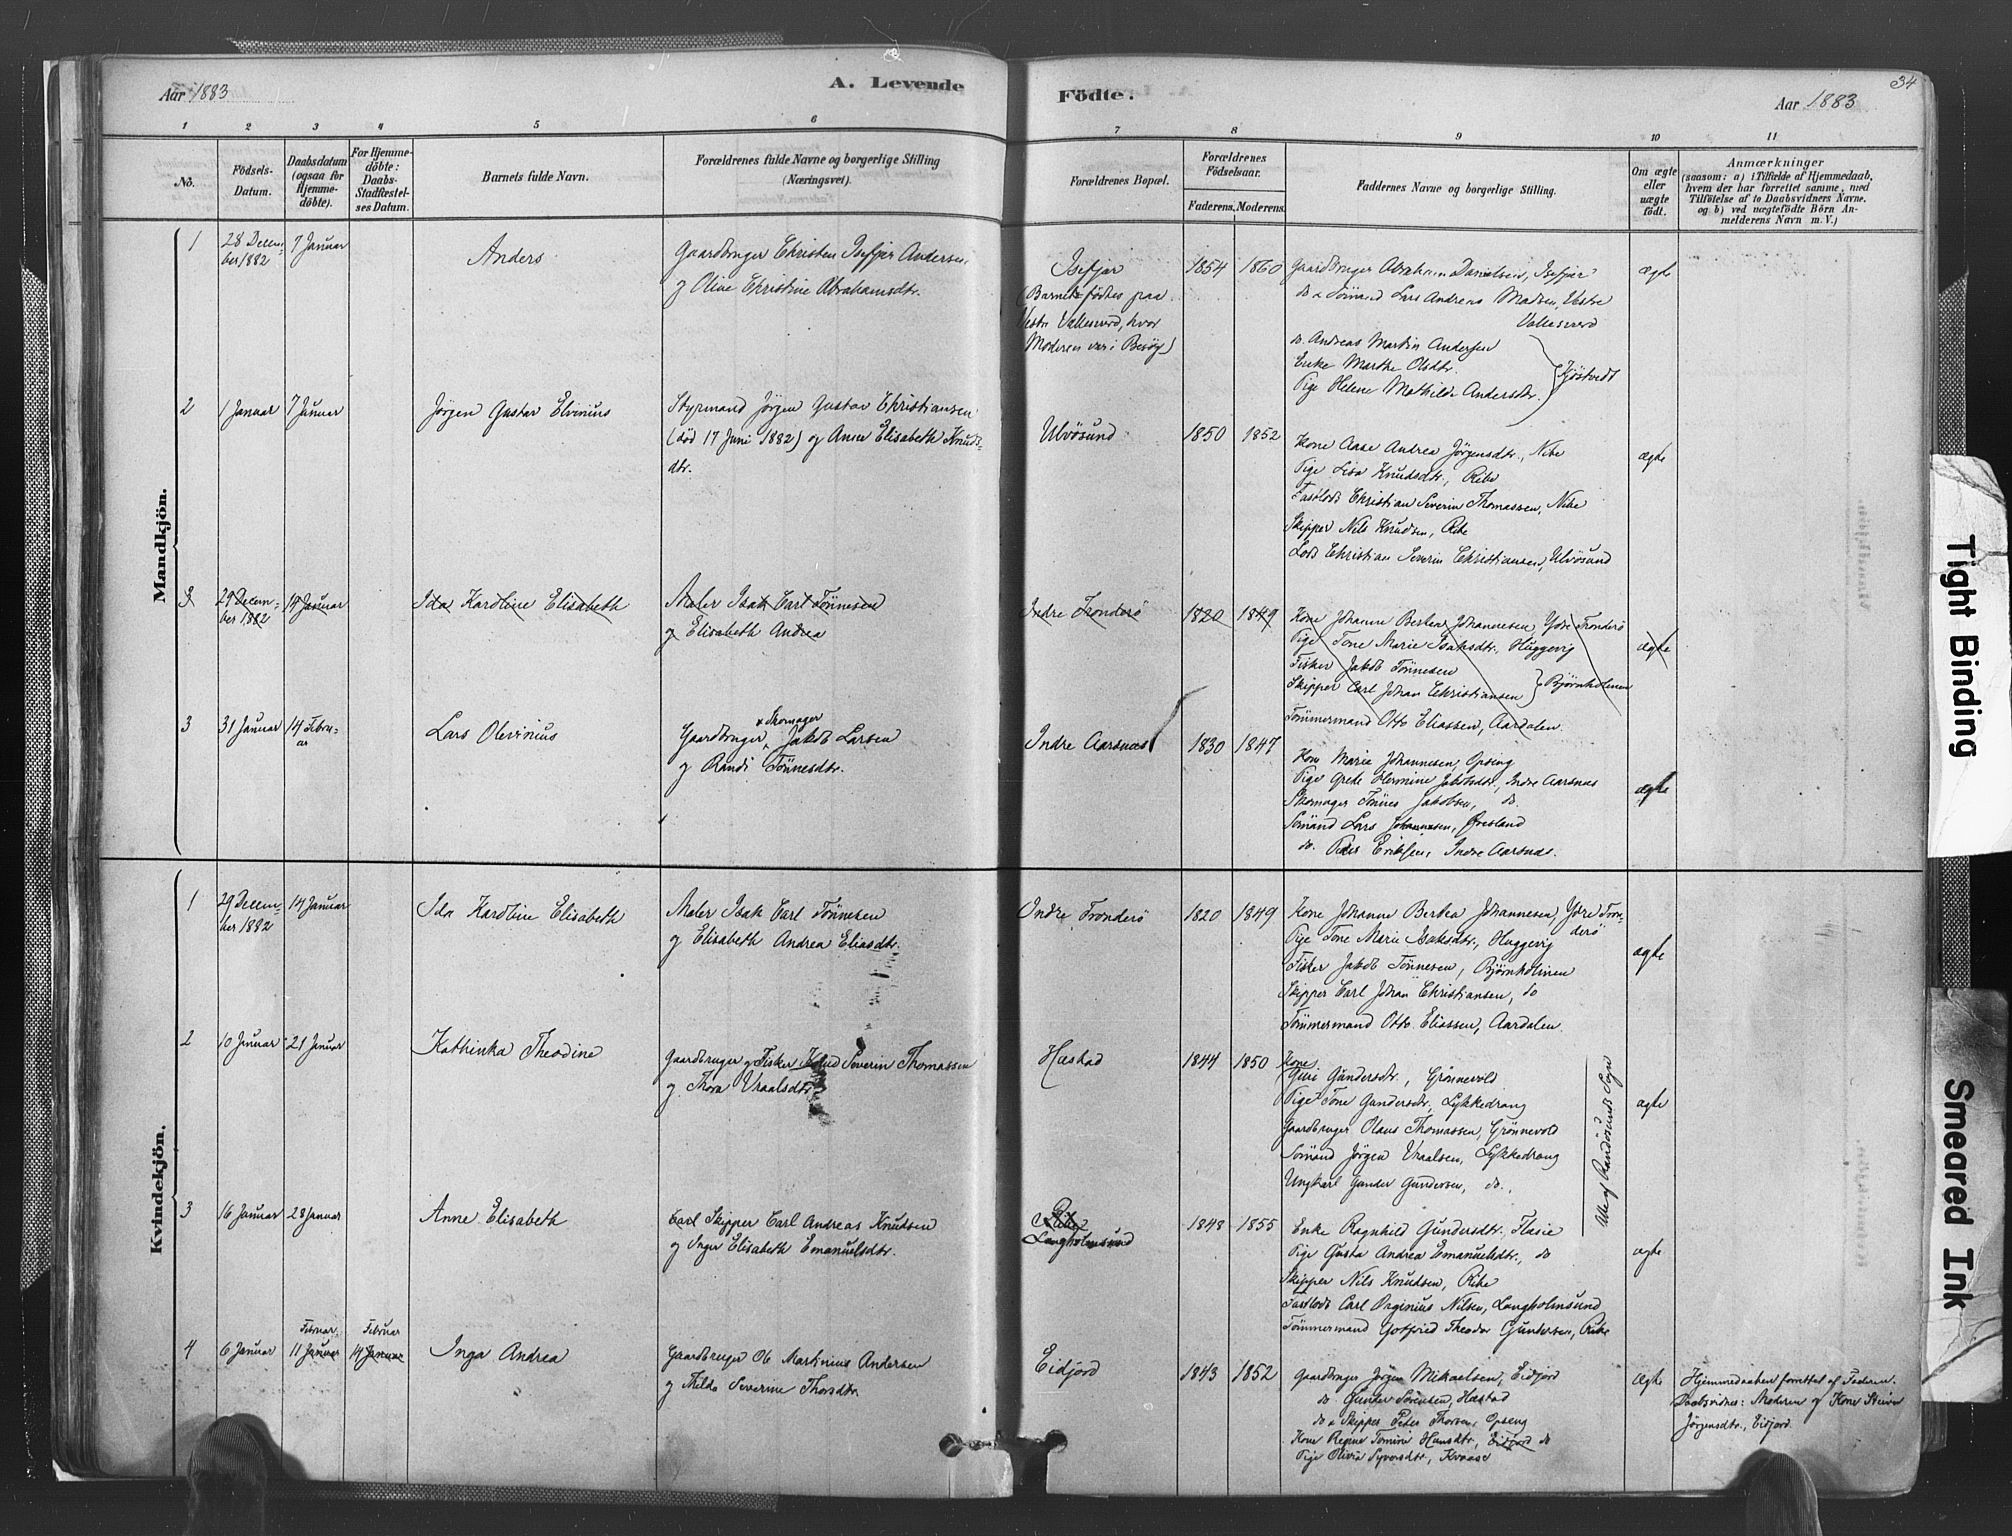 34
Aar 1883
A. Levende
Födte.
Aar 1883
1 2 3 4 5 6 7 8 9 10 11
No.
Födsels-
Datum.
Daabsdatum
(ogsaa for
Hjemme-
döbte).
For Hjemme-
döbte:
Daabs-
Stadfæstel-
ses Datum.
Barnets fulde Navn.
Forældrenes fulde Navne og borgerlige Stilling
(Næringsvei).
Forældrenes Bopæl.
Forældrenes
Födselsaar.
Faderens. Moderens.
Faddernes Navne og borgerlige Stilling.
Om ægte
eller
uægte
födt.
Anmærkninger
(saasom: a) i Tilfælde af Hjemmedaab,
hvem der har forrettet samme, med
Tilföielse af to Daabsvidners Navne.
og b) ved uægtefödte Börn An-
melderens Navn m. V.)
Mandkjön.
1
28 Decem-
ber 1882
7 Januar
Anders
Gaardbruger Christen Isefjær Andersen
og Oline Christine Abrahamsdtr.
Isefjær
(Barnet födtes paa
Vestre Vallesverd, hvor
Moderen var i Besög)
1854 1860
Gaardbruger Abraham Danielsen, Isefjær
do & Sömand Lars Andreas Madsen, Vestre
Vallesverd
do. Andreas Martin Andersen
Enke Marthe Olsdtr.
Pige Helene Mathilde Andersdtr.
Kjöstvedt
ægte
2
1 Januar
7 Januar
Jörgen Gustav Elvinius
Styrmand Jörgen Gustav Christiansen
(död 17 Juni 1882) og Anne Elisabeth Knuds-
dtr.
Ulvösund
1850 1852
Kone Aase Andrea Jörgensdtr., Nibe
Pige Lisa Knudsdtr., Ribe
Fastlods Christian Severin Thomassen, Nibe
Skipper Nils Knudsen, Ribe
Lods Christian Severin Christiansen, Ulvösund
ægte
3
29 Decem-
ber 1882
14 Januar
Ida Karoline Elisabeth
Maler Isak Carl Tönnesen
og Elisabeth Andrea
Indre Tronderö
1820 1849
Kone Johanne Bertea Johannesen, Ydre Tronderö
Pige Tone Marie Isaksdtr. Huggevig
Fisker Jakob Tönnesen
Skipper Carl Johan Christiansen
Björnholmen
Tömmermand Otto Eliassen, Aardalen.
ægte
3
31 Januar
14 Febru-
ar
Lars Olevinius
Gaardbruger & Skomager Jakob Larsen
og Randi Tönnesdtr.
Indre Aarsnes
1830 1847
Kone Marie Johannesen, Opseng
Pige Grete Hermine Jakobsdtr, Indre Aarsnes
Skomager Tönnes Jakobsen, do.
Sömand Lars Johannesen, Öresland
do. Peder Eriksen, Indre Aarsnes.
ægte
Kvindekjön.
1
29 Decem-
ber 1882
14 Januar
Ida Karoline Elisabeth
Maler Isak Carl Tönnesen
og Elisabeth Andrea Eliasdtr.
Indre Tronderö
1820 1849
Kone Johanne Bertea Johannesen, Ydre Tron-
derö
Pige Tone Marie Isaksdtr., Huggevig
Fisker Jakob Tönnesen, Björnholmen
Skipper Carl Johan Christiansen, do
Tömmermand Otto Eliassen, Aardalen.
ægte
2
10 Januar
21 Januar
Kathinka Theodine
Gaardbruger og Fisker Knud Severin Thomassen
og Thora Vraalsdtr.
Hæstad
1844 1850
Kone
Guri Gundersdtr., Grönnevold
Pige Tone Gundersdtr., Lykkedrang
Gaardbruger Olaus Thomassen, Grönnevold
Sömand Jörgen Vraalsen, Lykkedrang
Ungkarl Gunder Gundersen, do.
Alle af Randösunds Sogn
ægte
3
16 Januar
28 Januar
Anne Elisabeth
Carl Skipper Carl Andreas Knudsen
og Inger Elisabeth Emanuelsdtr.
Ribe
Langholmsund
1848 1855
Enke Ragnhild Gundersdtr. Flasie
Pige Gusta Andrea Emanuelsdtr., do
Skipper Nils Knudsen, Ribe
Fastlods Carl Orginius Nilsen, Langholmsund
Tömmermand Gotfried Theodor Gundersen, Ribe
ægte
4
6 Januar
Februar
11 Januar
Februar
14 Januar
Inga Andrea
Gaardbruger Ole Martinius Andersen
og Thilda Severine Thorsdtr.
Eidjord
1843 1852
Gaardbruger Jörgen Mikaelsen, Eidjord
do. Gunder Sörensen, Hæstad
do & Skipper Peter Thorsen, Opseng
Kone Regine Tomine Hansdtr., Eidjord do
Pige Olivia Syversdtr., Kvaase
ægte
Hjemmedaaben forrettet af Faderen.
Daabsvidner: Moderen og Kone
Jörgensdtr., Eidjord.
Tight Binding
Smeared Ink